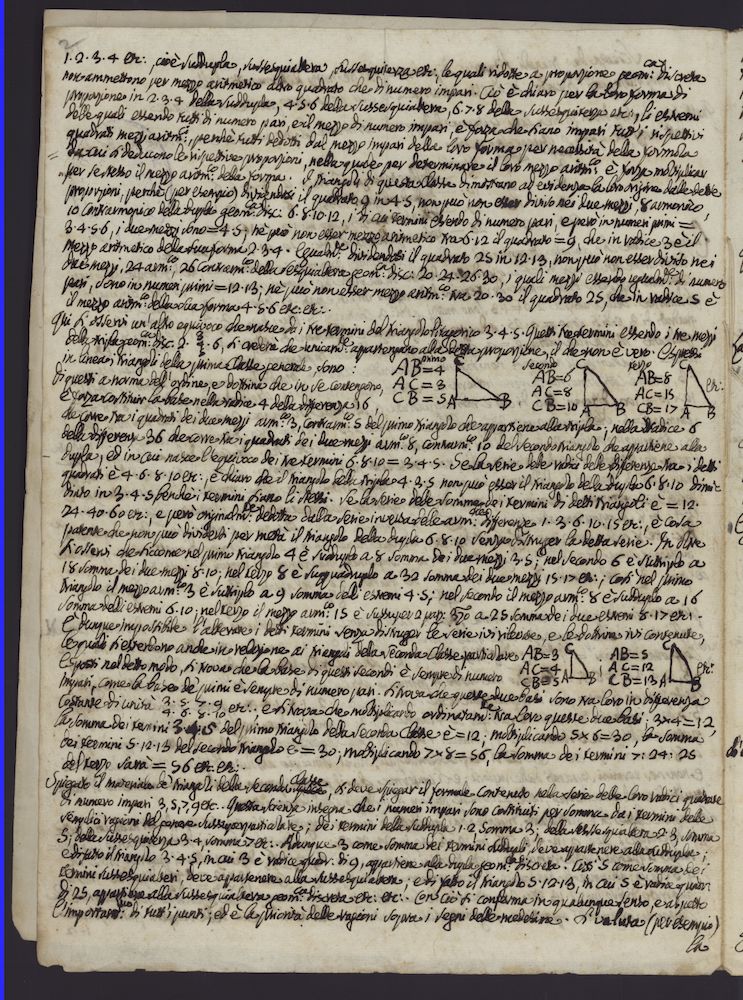 2
1. 2. 3. 4 etc:, cioè suddupla, sussesquialtera, sussesquiterza etc:, le quali ridotte a proporzione geom: discreta
non ammettono per mezzo aritmetico altro quadrato che di numero impari. Ciò è chiaro per la loro forma di
proporzione in 2. 3. 4 della suddupla, 4. 5. 6 della sussesquialtera, 6. 7. 8 della sussesquiterza etc:, gli estremi
delle quali essendo tutti di numero pari, e il mezzo di numero impari, è forza che siano impari tutti i rispettivi
quadrati mezzi aritm:, perchè tutti dedotti dal mezzo impari della loro forma per necessità della formola
da cui si deducono le rispettive proporzioni, nella quale per determinare il loro mezzo aritm: è forza moltiplicar
per se stesso il mezzo aritm: della forma. I triangoli di questa Classe dimostrano ad evidenza la loro origine dalle dette
proporzioni, perchè (per esempio) dividendosi il quadrato 9 in 4. 5, non può non esser diviso nei due mezzi, 8 armonico,
10 Contrarmonico della dupla geom: disc: 6. 8. 10. 12, i di cui termini essendo di numero pari, e però in numeri primi =
3. 4. 5. 6, i due mezzi sono = 4. 5; nè può non esser mezzo aritmetico tra 6. 12 il quadrato = 9, che in radice 3 è il
mezzo aritmetico della sua forma 2. 3. 4. Egualm: dividendosi il quadrato 25 in 12. 13, non può non esser diviso nei
due mezzi, 24 arm:, 26 Contrarm: della sesquialtera geom: disc: 20. 24. 26. 30, i quali mezzi essendo egualm: di numero
pari, sono in numeri primi = 12. 13; nè può non esser mezzo aritm: tra 20. 30 il quadrato 25, che in radice 5 è
il mezzo aritm: della sua forma 4. 5. 6 etc: etc:
Qui si osservi un altro equivoco che nasce dai tre termini del triangolo Pitagorico 3. 4. 5. Questi tre termini essendo i tre mezzi
della tripla geom: disc: 2. 3. 4. 5. 6, si crederà che unicam: appartengano alla detta proporzione, il che non è vero. Esposti
in linea i triangoli della prima Classe generale sono:
primo AB=4 AC=3 CB=5
C A B
secondo AB=6 AC=8 CB=10
C A B
terzo AB=8 AC=15 CB=17
C A B etc:
Di questi a norma dell'ordine, e dottrina che in se contengono,
è forza costituir la base nella radice 4 della differenza 16,
che corre tra i quadrati dei due mezzi arm: 3, Contrarm: 5 del primo triangolo che appartiene alla tripla; nella radice 6
della differenza 36 che corre tra i quadrati dei due mezzi arm: 8, Contrarm: 10 del secondo triangolo che appartiene alla
dupla; ed in cui nasce l'equivoco dei tre termini 6. 8. 10 = 3. 4. 5. Se la serie delle radici delle differenze tra i detti
quadrati è 4. 6. 8. 10 etc:, è chiaro che il triangolo della tripla 4. 3. 5 non può esser il triangolo della dupla 6. 8. 10 dimi-
nuito in 3. 4. 5 benchè i termini siano li stessi. Se la serie delle somme dei termini di detti triangoli è = 12.
24. 40. 60 etc:, e però originalm: dedotta dalla serie inversa delle arm: differenze 1. 3. 6. 10. 15 etc:, è cosa
patente che non può dividersi per metà il triangolo della dupla 6. 8. 10 senza distrugger la detta serie. In oltre
si osservi che siccome nel primo triangolo 4 è sudduplo a 8 somma dei due mezzi 3. 5; nel secondo 6 è suttriplo a
18 somma dei due mezzi 8. 10; nel terzo 8 è suqquadruplo a 32 somma dei due mezzi 15. 17 etc:; così nel primo
triangolo il mezzo arm: 3 è suttriplo a 9 somma dell'estremi 4. 5; nel secondo il mezzo arm: 8 è sudduplo a 16
somma dell'estremi 6. 10; nel terzo il mezzo arm: 15 è a 25 somma dei due estremi 8. 17 etc:.
È dunque impossibile l'alterare i detti termini senza distrugger le serie ivi incluse, e le dottrine ivi contenute,
le quali si estendono anche in relazione ai triangoli della seconda Classe particolare
AB=3 AC=4 CB=5
C A B
AB=5 AC=12 CB=13
C A B etc:
Esposti nel detto modo, si trova che la base di questi secondi è sempre di numero
impari, come la base de' primi è sempre di numero pari. Si trova che queste due basi sono tra loro in differenza
costante di unità 3. 5. 7. 9
4. 6. 8. 10 etc:. e si trova che moltiplicando ordinatam: tra loro queste due basi, 3×4=12,
la somma dei termini 3. 4. 5 del primo triangolo della seconda Classe è = 12; moltiplicando 5×6=30, la somma
dei termini 5. 12. 13 del secondo triangolo è = 30; moltiplicando 7×8=56, la somma dei termini 7. 24. 25
del terzo sarà = 56 etc: etc:
Spiegato il materiale de' triangoli della seconda Classe, si deve spiegar il formale contenuto nella serie delle loro radici quadrate
di numero impari 3, 5, 7, 9 etc:. Questa scienza insegna che i numeri impari sono costituiti per somma dai termini delle
semplici ragioni del genere sussuperparticolare; dei termini della suddupla 1. 2 somma 3; della sussesquialtera 2. 3 somma
5; della sussesquiterza 3. 4 somma 7 etc:. Adunque 3 come somma dei termini suddupli, deve appartenere alla suddupla;
e di fatto il triangolo 3. 4. 5, in cui 3 è radice quadr: di 9, appartiene alla dupla geom: discreta. Così 5 come somma dei
termini sussesquialteri, deve appartenere alla sussesquialtera; e di fatto il triangolo 5. 12. 13, in cui 5 è radice quadr:
di 25, appartiene alla sussesquialtera geom: discreta etc: etc:. Con ciò si conferma in qualunque senso, e aspetto
l'important:mo di tutti i punti; ed è la priorità delle ragioni sopra i segni delle medesime. Si valuta (per esempio)
la